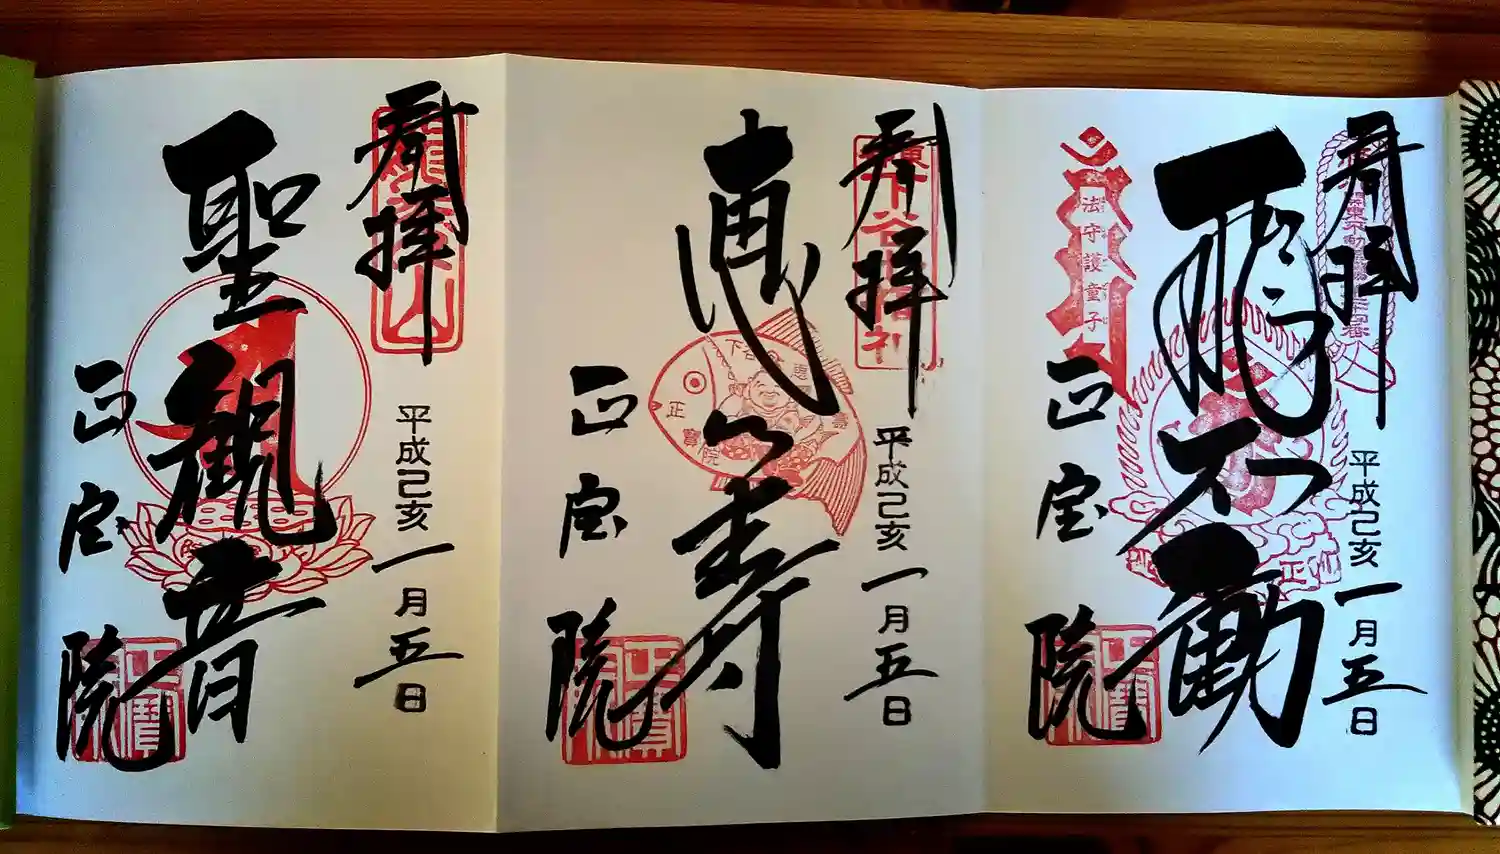 奉拝
平成己亥一月五日
飛不動
法守護童子
正宝院
奉拝
平成己亥一月五日
恵比寿
下谷
恵
寿
正
寶院
正宝院
奉拝
龍光山
平成己亥一月五日
聖観音
正宝院